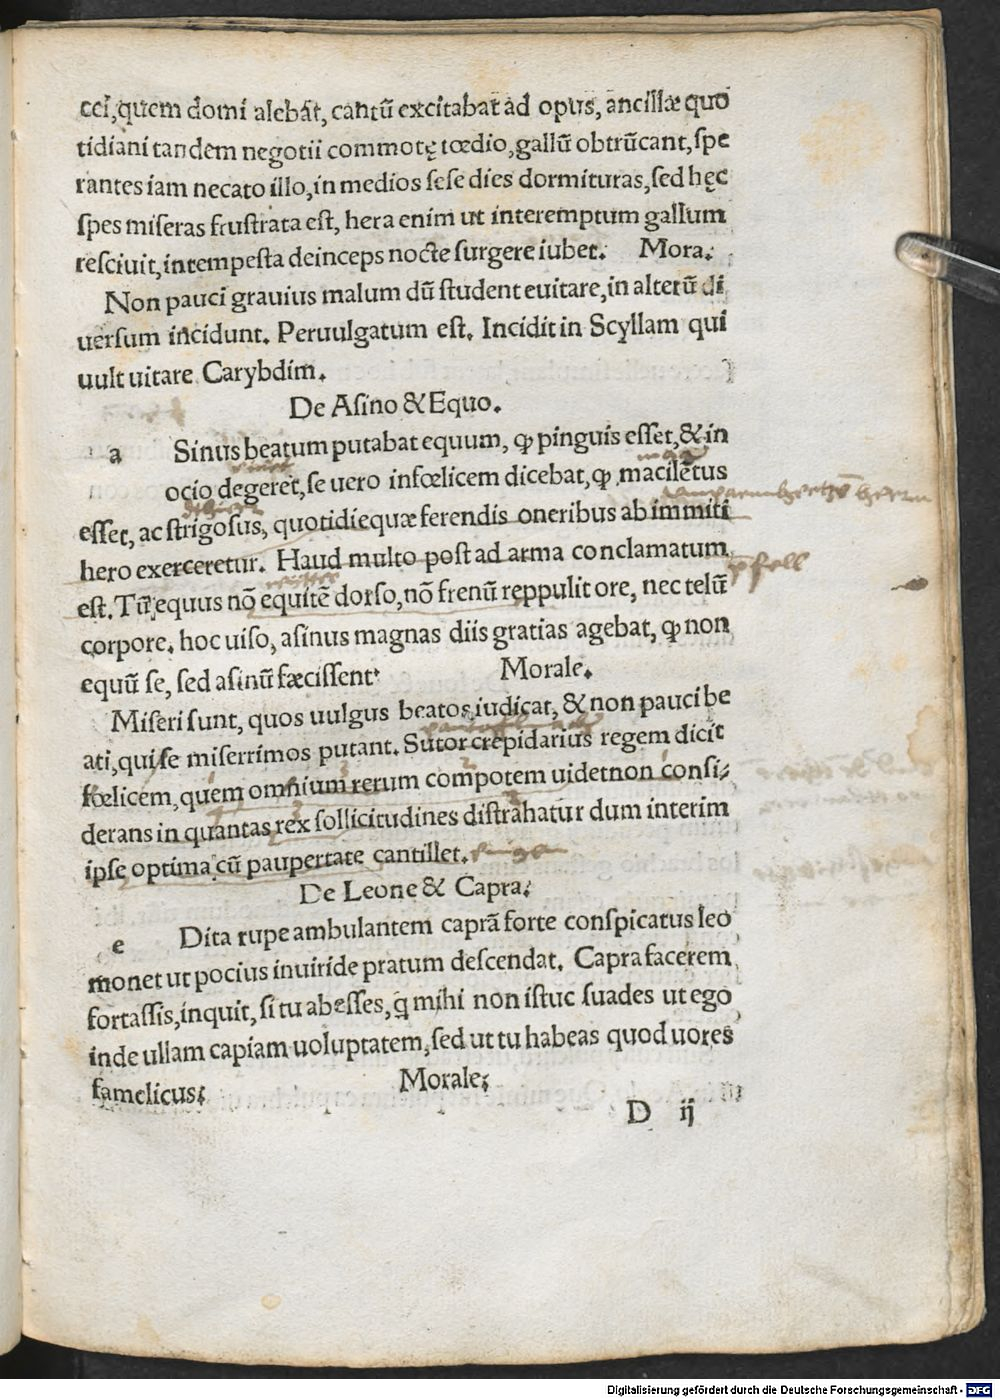 cei,quem domi alebāt, cantū excitabat ad opus, ancillæ quo
tidiani tandem negotii commotę tœdio,gallū obtrūcant, spe
rantes iam necato illo,in medios sese dies dormituras,sed hęc
spes miseras frustrata est, hera enim ut interemptum gallum
resciuit,intempesta deinceps nocte surgere iubet. Mora.
Non pauci grauius malum dū student euitare,in alterū di
uersum incidunt. Peruulgatum est. Incidit in Scyllam qui
uult uitare Carybdim.
De Asino & Equo.
a Sinus beatum putabat equum, ꝙ pinguis esset,& in
ocio degeret,se uero infœlicem dicebat,ꝙ macilētus
esset, ac strigosus, quotidiequæ ferendis oneribus ab immiti
hero exerceretur. Haud multo post ad arma conclamatum
est. Tū equus nō equitē dorso,nō frenū reppulit ore, nec telū
corpore. hoc uiso, asinus magnas diis gratias agebat, ꝙ non
equū se, sed asinū fæcissent
Morale.
Miseri sunt, quos uulgus beatos iudicat, & non pauci be
ati,qui se miserrimos putant. Sutor crepidarius regem dicit
fœlicem,quem omnium rerum compotem uidet non consi/
derans in quantas rex sollicitudines distrahatur dum interim
ipse optima cū paupertate cantillet. singen
De Leone & Capra.
e Dita rupe ambulantem caprā forte conspicatus leo
monet ut pocius inuiride pratum descendat. Capra facerem
fortassis,inquit, si tu abesses,q̄ mihi non istuc suades ut ego
inde ullam capiam uoluptatem,sed ut tu habeas quod uores
famelicus; Morale;
D ij
Digitalisierung gefördert durch die Deutsche Forschungsgemeinschaft - DFG